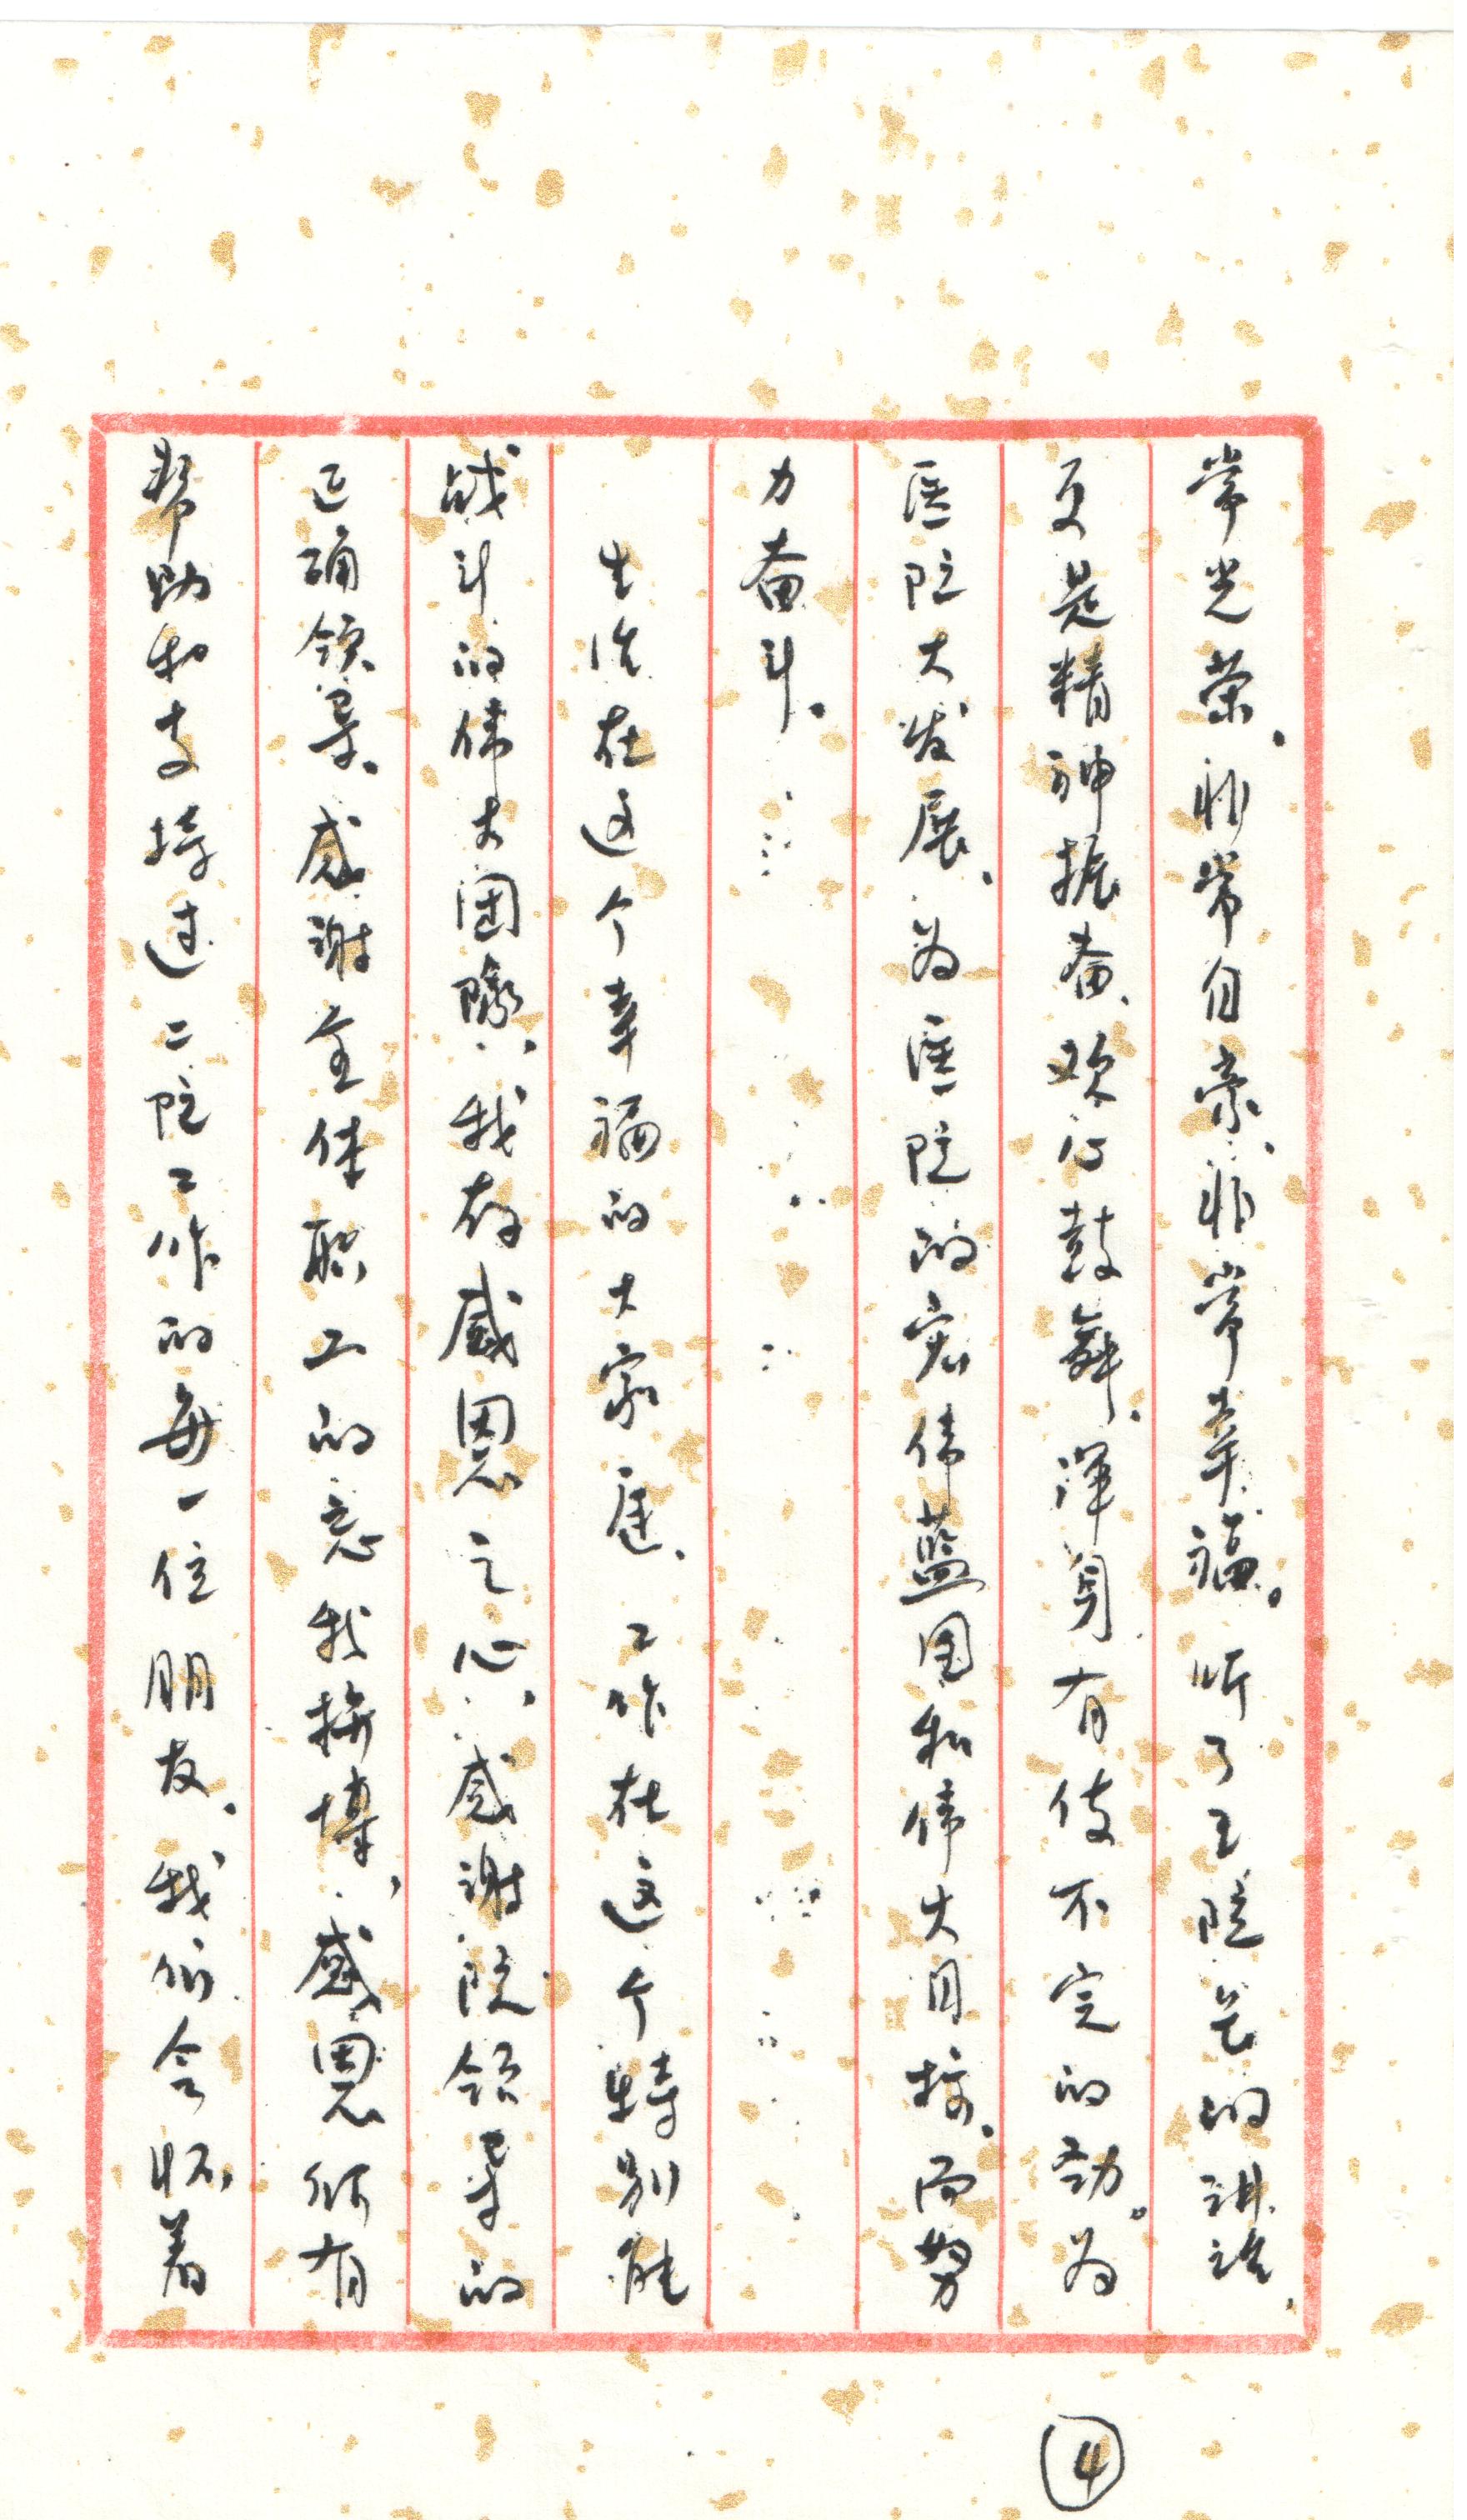 常光荣。非常自豪、非常幸福。听了王院长的讲话、
更是精神振奋、欢心鼓舞、浑身有使不完的劲。为
医院大发展、为医院的宏伟蓝图和伟大目标、而努
力奋斗。
生活在这个幸福的大家庭、工作在这个特别能
战斗的伟大团队、我存感恩之心、感谢院领导的
正确领导、感谢全体职工的忘我拚搏、感恩所有
帮助和支持过二院工作的每一位朋友。我们含怀着
4